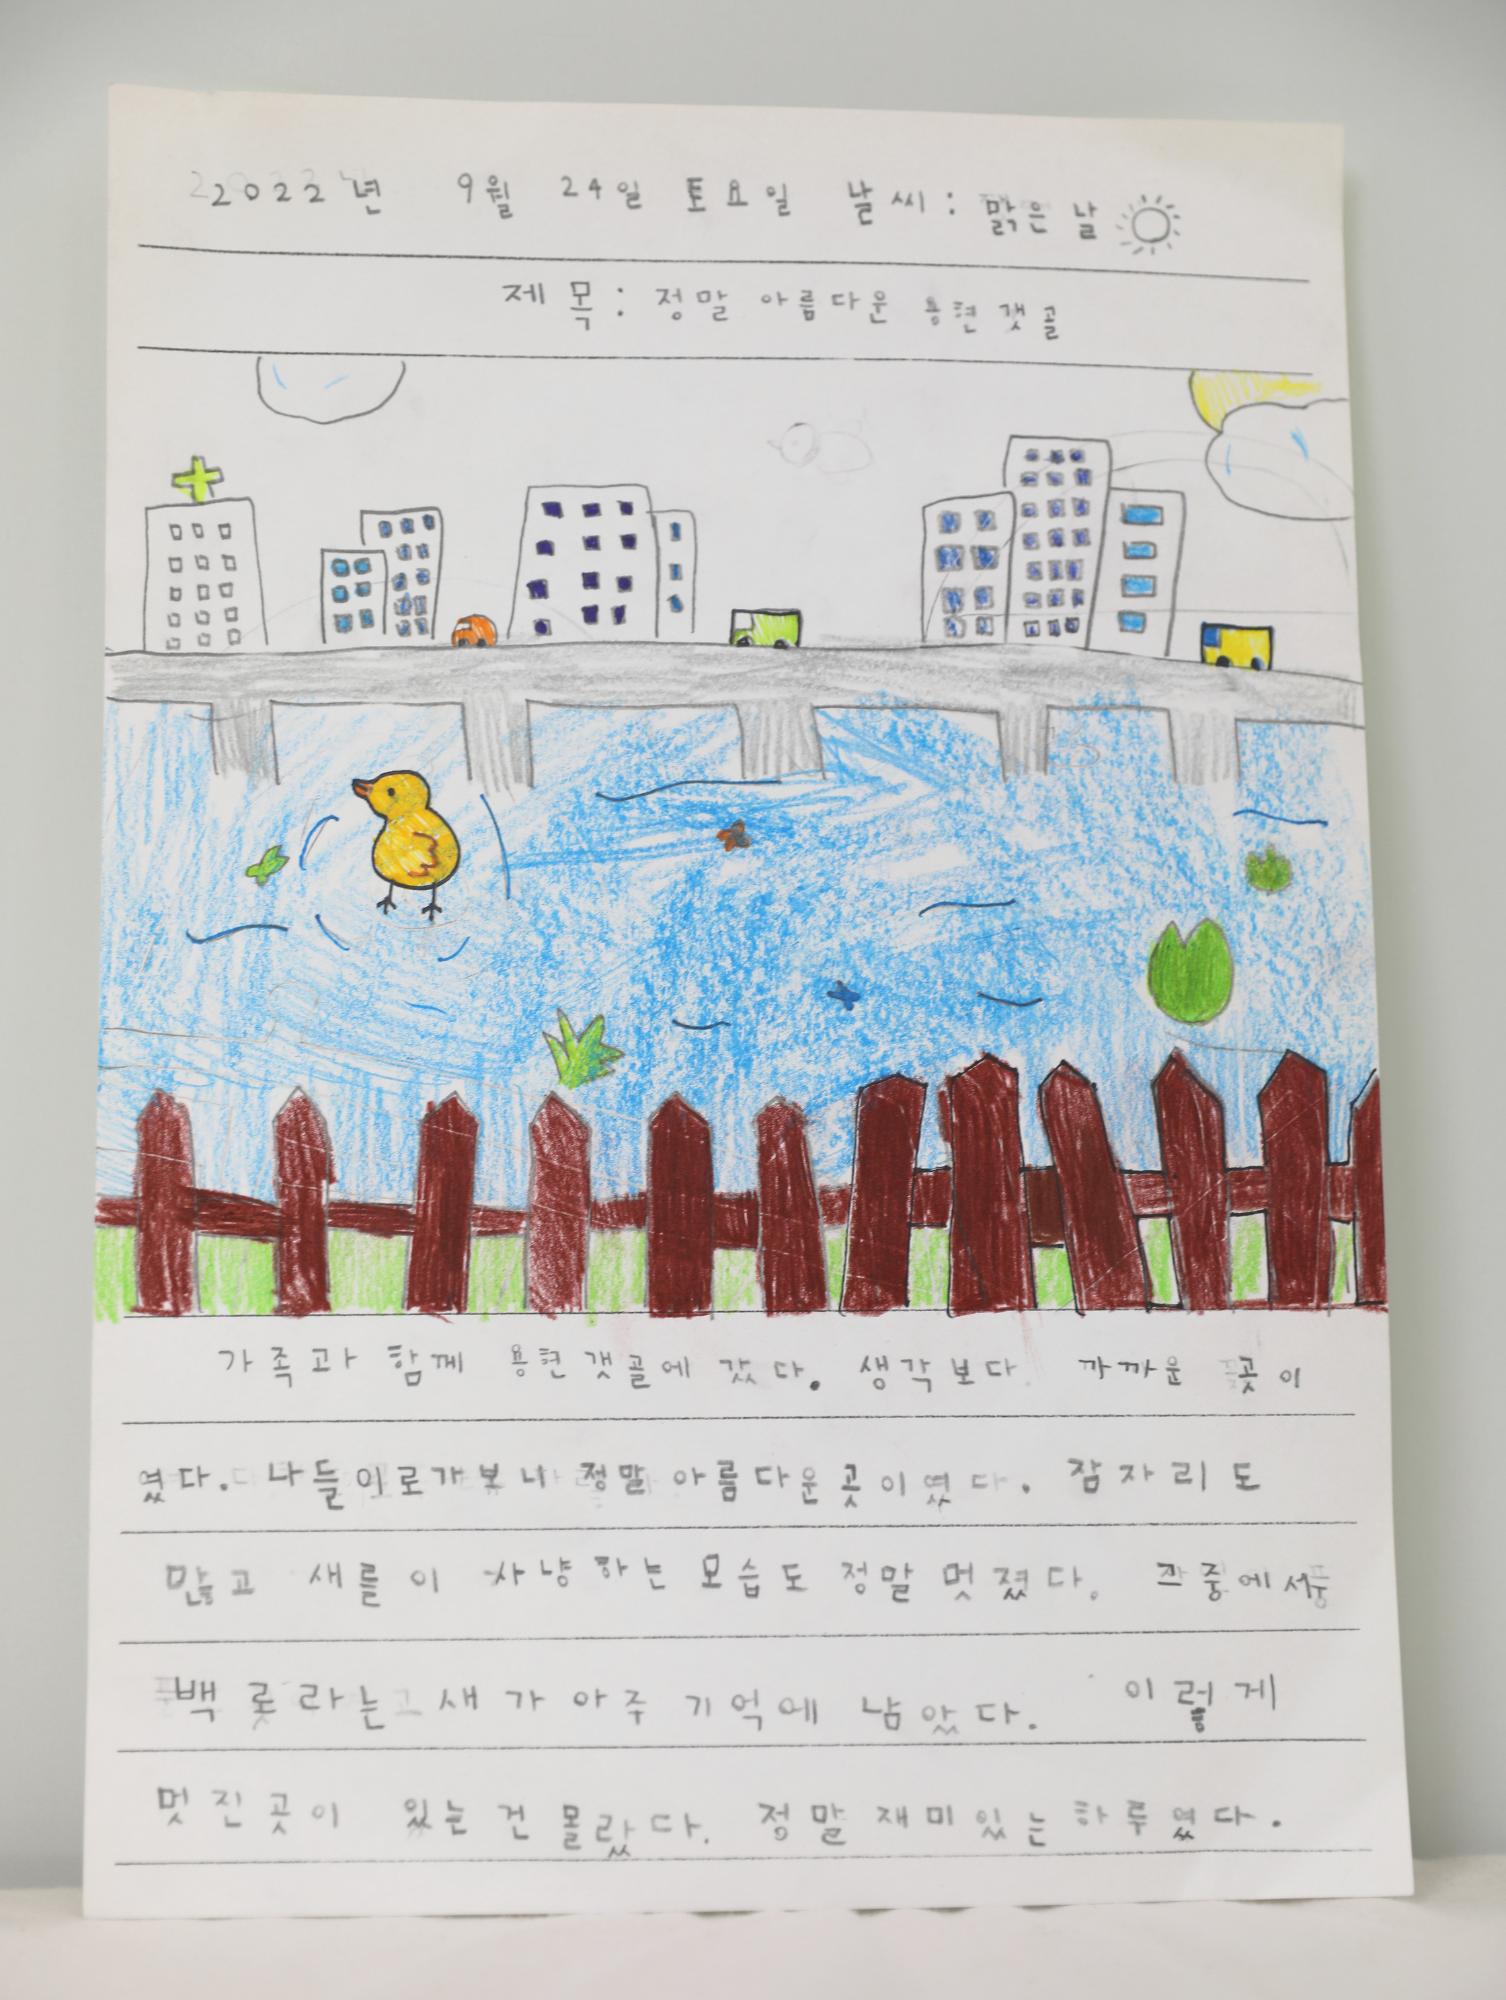 2022년 9월 24일 토요일 날씨: 맑은 날
제목: 정말 아름다운 용현갯골
가족과 함께 용현갯골에 갔다. 생각보다 까까운 곳이
였다. 나들이로가보니 정말 아름다운곳이였다. 잠자리도
많고 새들이 사냥하는 모습도 정말 멋졌다. 그중에서
백롯라는 새가 아주 기억에 남았다. 이렇게
멋진곳이 있는건 몰랐다. 정말 재미있는 하루였다.